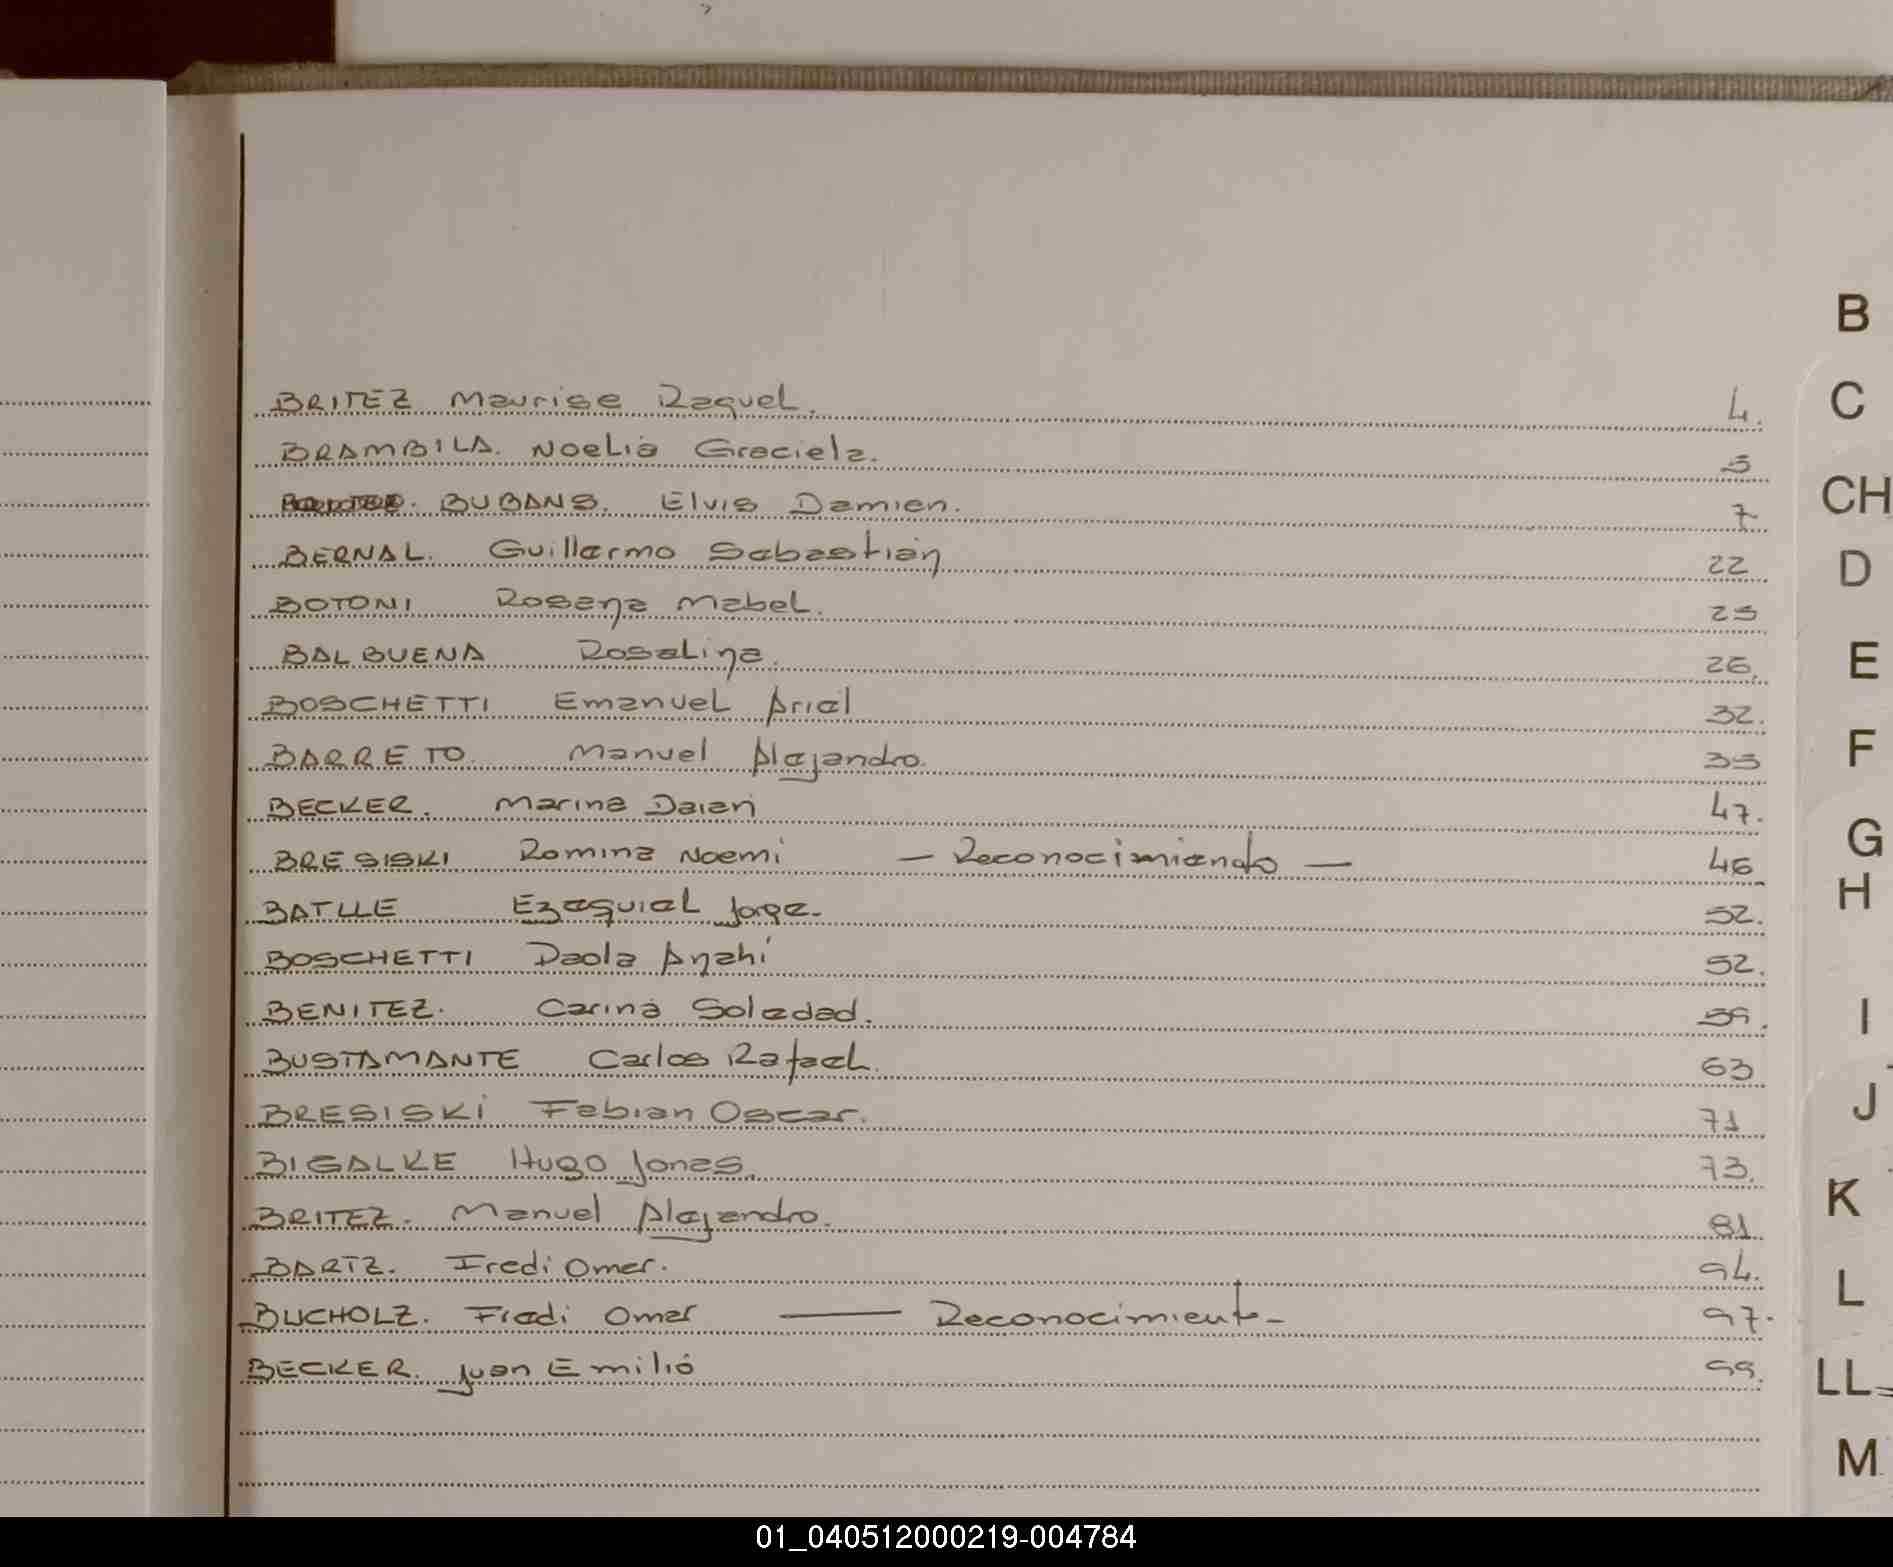 BRITEZ Maurise Raquel. 4.
BRAMBILA. Noelia Graciela. 5
BUBANS. Elvis Damien. 7
BERNAL. Guillermo Sebastián 22
BOTONI Rosana Mabel. 25
BALBUENA Rosalina. 26.
BOSCHETTI Emanuel Ariel 32.
BARRETO. Manuel Alejandro. 35
BECKER. Marina Daian 47.
BRESISKI Romina Noemi — Reconocimiento — 46
BATLLE Ezequiel Jorge. 52.
BOSCHETTI Paola Anahi 52.
BENITEZ. Carina Soledad. 59.
BUSTAMANTE Carlos Rafael. 63
BRESISKI Fabian Oscar. 71
BIGALKE Hugo Jonas. 73.
BRITEZ. Manuel Alejandro. 81
BARTZ. Fredi Omer. 94.
BUCHOLZ. Fredi Omar — Reconocimiento - 97.
BECKER. Juan Emilio 99.
B
C
CH
D
E
F
G
H
I
J
K
L
LL
M
01_040512000219-004784